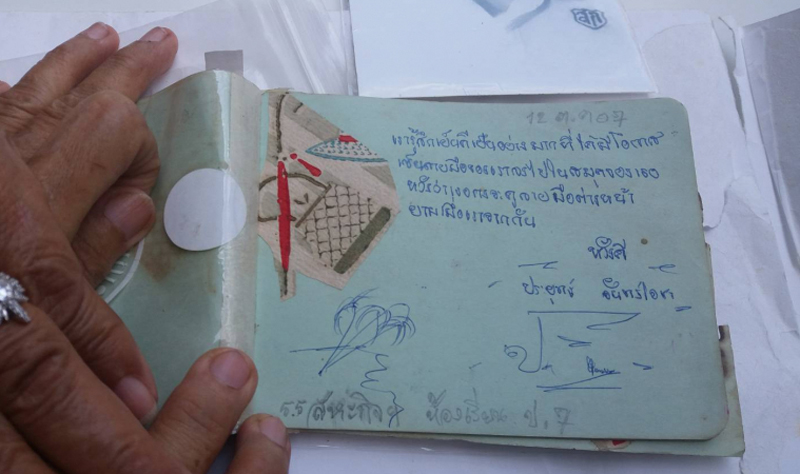 12 ต.ค 07
เรารู้สึกเป็นเกียรติเป็นอย่างมากที่ได้มีโอกาส
เซ็นลายมือของเราลงไปในสมุดของเธอ
หวังว่าเธอคงจะดูลายมือต่างหน้า
ยามเมื่อเราจากกัน
หวังดี
ประยุทธ์ จันทร์โอชา
ป.
ร.ร สหะกิจ ห้องเรียน ป.7